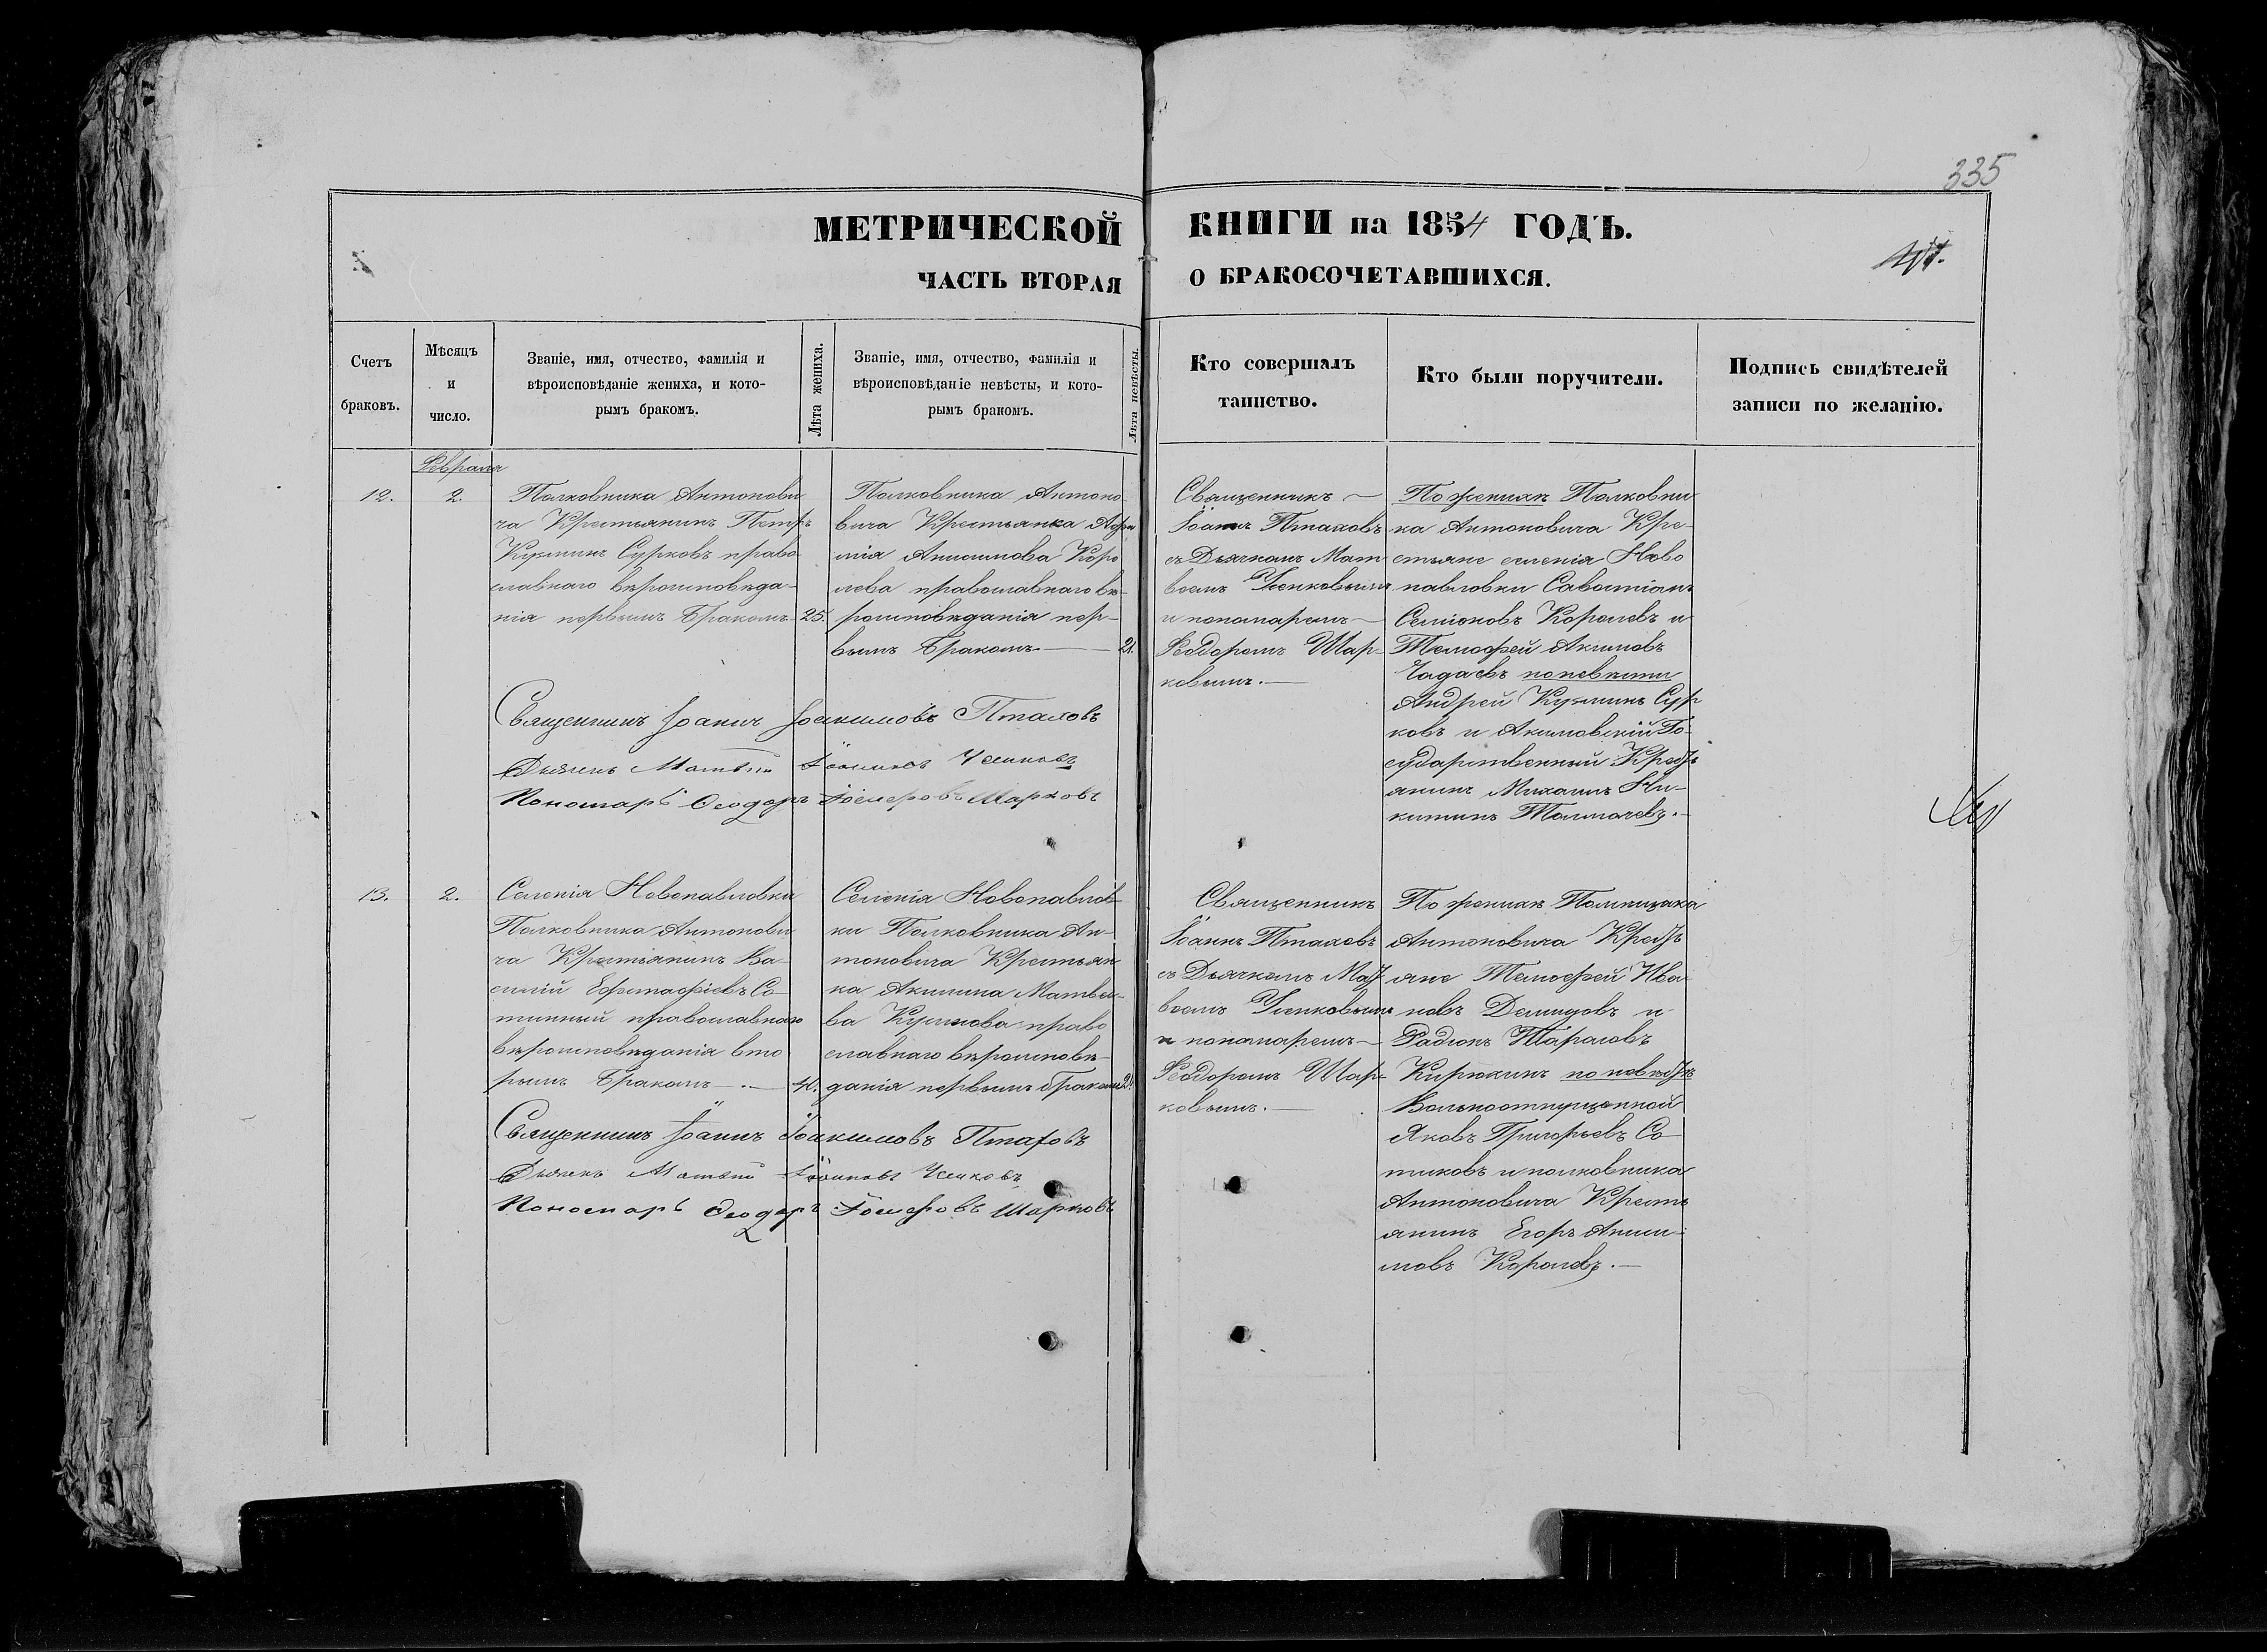 335
МЕТРИЧЕСКОЙ КНИГИ на 1854 ГОДЪ.
ЧАСТЬ ВТОРАЯ О БРАКОСОЧЕТАВШИХСЯ.
Счетъ
браковъ.
Мѣсяцъ
и
число.
Званіе, имя, отчество, фамилія и
вѣроисповѣданіе жениха, и кото-
рымъ бракомъ.
Лѣта жениха.
Званіе, имя, отчество, фамилія и
вѣроисповѣданіе невѣсты, и кото-
рымъ бракомъ.
Лѣта невѣсты.
Кто совершалъ
таинство.
Кто были поручители.
Подпись свидѣтелей
записи по желанію.
Февраля
12.
2.
Полковника Антонови
ча Крестьянинъ Петръ
Кузминъ Сурковъ право
славнаго вѣроисповѣда-
нія первымъ бракомъ
25.
Полковника Антоно
вича Крестьянка
Анисимова Коро
лева православнаго вѣ-
роисповѣданія пер-
вымъ бракомъ
21.
Священникъ
Іоаннъ Птаховъ
съ Дьячкомъ Мат
веемъ
и пономаремъ
Феодоромъ Шар-
ковымъ.
По женихѣ Полковни
ка Антоновича Кре-
стьяне селенія Ново
павловки Савостіанъ
Семіоновъ Королевъ и
Тимофей Акимовъ
Чадаевъ по невѣсти
Андрей Кузминъ Сур
ковъ и Акимовскій Го-
сударственный Крест
янинъ Михаилъ Ни-
китинъ Толмачевъ.
Священникъ Іоаннъ Іоакимовъ Птаховъ
Дьячекъ Матвѣй Іоанновъ
Пономарь Феодоръ Шарковъ
13.
2.
Селенія Новопавловки
Полковника Антонови
ча Крестіянинъ Ва-
силій Ефстафіевъ Со-
тинный православнаго
вѣроисповѣданія вто
рымъ бракомъ
Селенія Новопавлов-
ки Полковника Ан-
тоновича Крестьян
ка Акилина Матвее-
ва право
славнаго вѣроисповѣ-
данія первымъ бракомъ
Священникъ
Іоаннъ Птаховъ
съ Дьячкомъ Мат
веемъ
и пономаремъ
Феодоромъ Шар-
ковымъ.
По женихѣ Помѣщика
Антоновича Крест
яне Тимофей Ива-
новъ Демидовъ и
Радіонъ Тарасовъ
Кирюхинъ по невѣстѣ
Вольноотпущенной
Яковъ Григорьевъ Со-
тниковъ и полковника
Антоновича Кресть
янинъ Егоръ Аниси-
мовъ Королевъ.
Священникъ Іоаннъ Іоакимовъ Птаховъ
Дьячекъ Матвѣй Іоанновъ
Пономарь Феодоръ Шарковъ